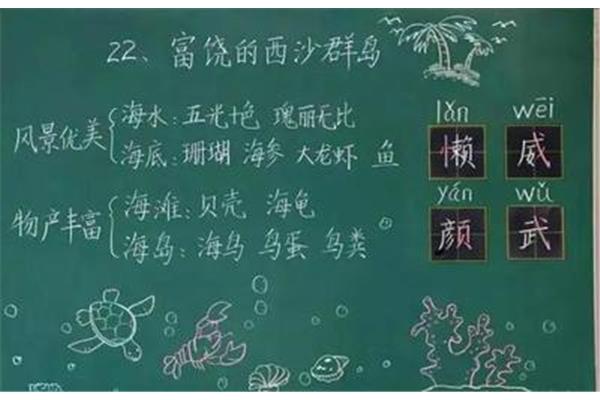 22、富饶的西沙群岛
风景优美
海水：五光十色 瑰丽无比
海底：珊瑚 海参 大龙虾 鱼
物产丰富
海滩：贝壳 海龟
海岛：海鸟 鸟蛋 鸟粪
lǎn wēi
懒 威
yán wǔ
颜 武